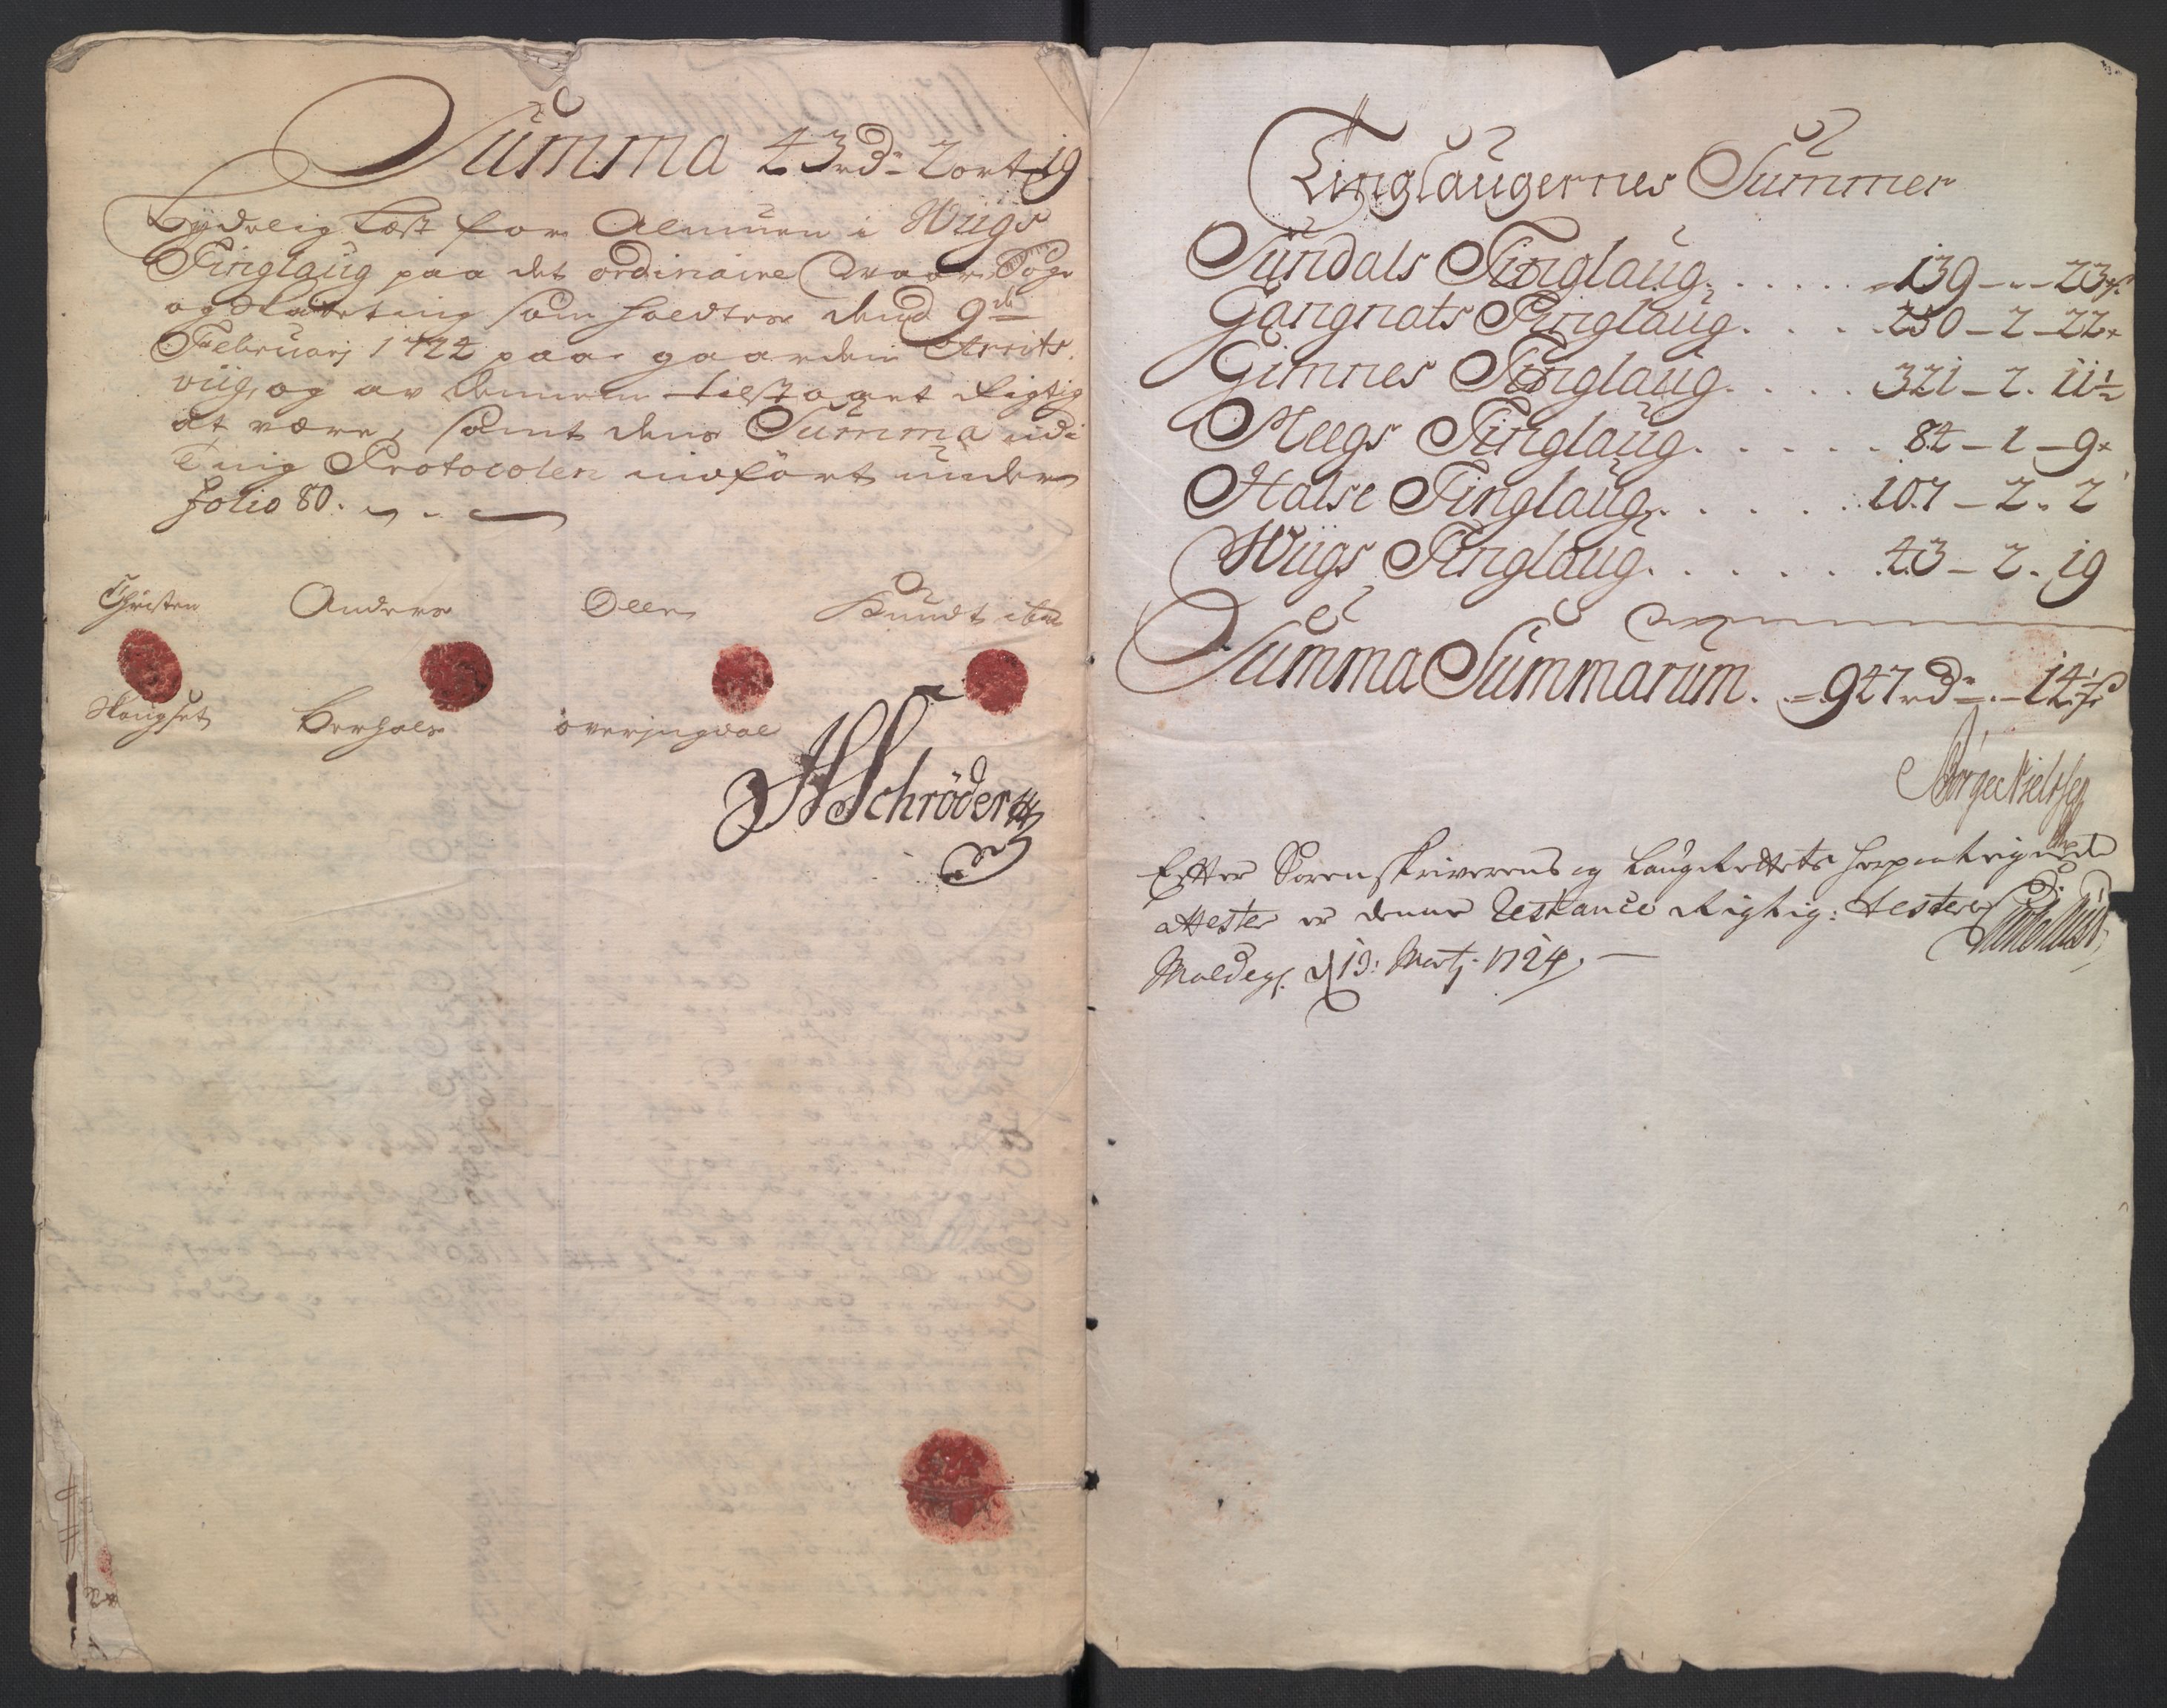 Summa 43 rd– 2 ort 19
Tydelig Læst for Almuen i Wiigs
Tinglaug paa det ordinaire Waar Sage
og Skatteting som holdtes dend 9de
Februarj 1724 paa gaarden Arrits
viig, og av dennem tilstaaet Rigtig
at være, samt dens Summa udi
Ting Protocolen indført under
folio 80.
Christen Anders Oelle Knudt ibm
Skougset Berhals overjngdal
Schröder
Tinglaugernes Summer
Sundals Tinglaug. . . . . 139 – – 23 s
Gangnats Tinglaug. . . . 250 – 2 – 22
Gimnes Tinglaug. . . . 321 – 2. 11½
Meegs Tinglaug. . . . . 84 – 1 – 9
Halse Tinglaug. . . . . 107 – 2. 2
Wiigs Tinglaug. . . . . 43 – 2. 19
Summa Summarum. . 947 rd – 14½ s
Børge Nielssen
Efter Sorenskriverens og Laugrettets
attester er denne Restance Rigtig: tester
Moldeg. d 13: Martj. 1724. —